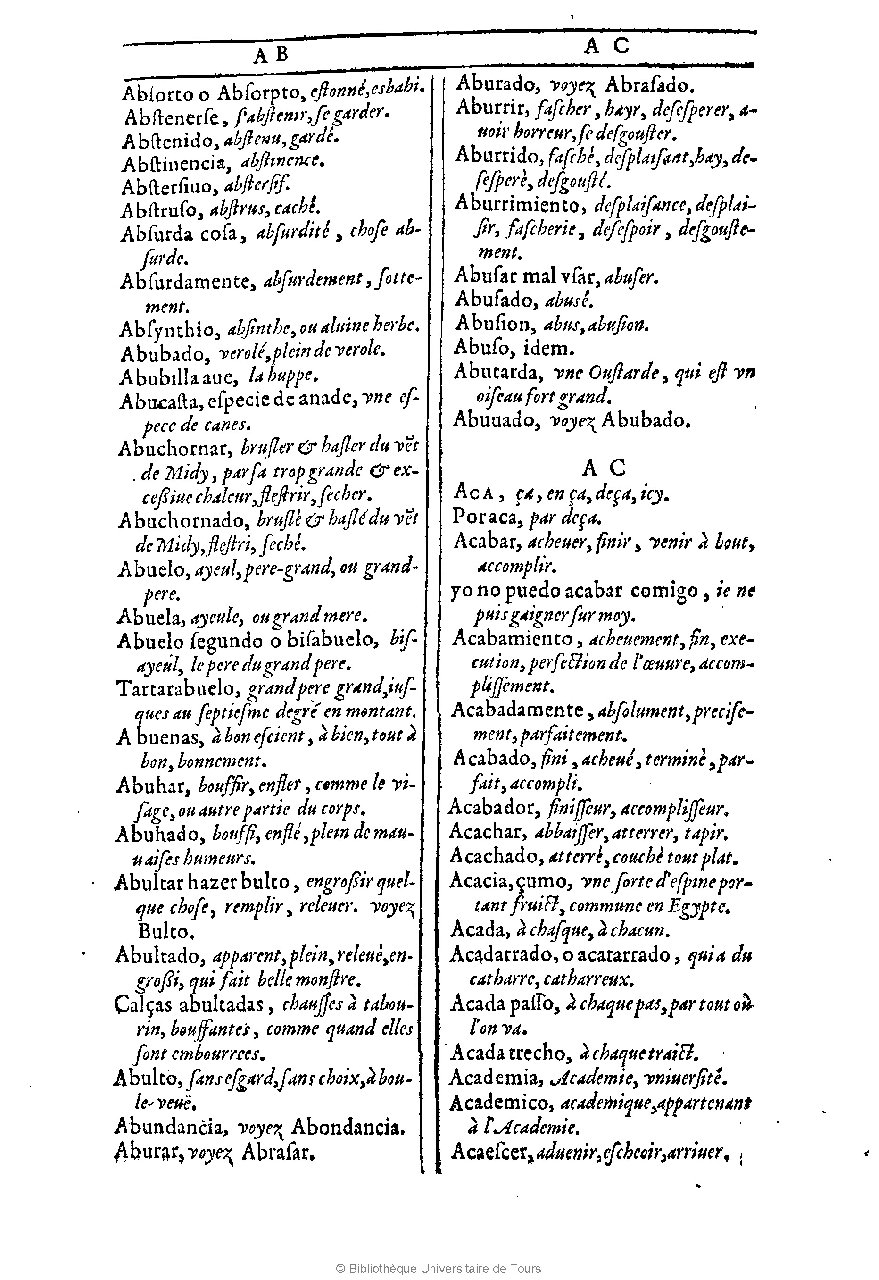 A B
Abſorto o Abſorpto, eſtonné, esbahi.
Abſtenerſe, s'abſtenir, ſe garder.
Abſtenido, abſtenu, gardé.
Abſtinencia, abſtinence.
Abſterſiuo, abſterſif.
Abſtruſo, abſtrus, caché.
Abſurda coſa, abſurdité, choſe ab-
ſurde.
Abſurdamente, abſurdement, ſotte-
ment.
Abſynthio, abſinthe, ou aluine herbe.
Abubado, verolé, plein de verole.
Abubilla aue, la huppe.
Abucaſta, eſpecie de anade, vne eſ-
pece de canes.
Abuchornar, bruſler & haſler du vẽt
de Midy, par ſa trop grande & ex-
ceßiue chaleur, fleſtrir, ſecher.
Abuchornado, bruſlè & haſlé du vẽt
de Midy, fleſtri, ſeché.
Abuelo, ayeul, pere-grand, ou grand-
pere.
Abuela, ayeule, ou grand mere.
Abuelo ſegundo o biſabuelo, biſ-
ayeul, le pere du grand pere.
Tartarabuelo, grand pere grand, iuſ-
ques au ſeptieſme degré en montant.
A buenas, à bon eſcient, à bien, tout à
bon, bonnement.
Abuhar, bouffir, enfler, comme le vi-
ſage, ou autre partie du corps.
Abuhado, bouffi, enflé, plein de mau-
uaiſes humeurs.
Abultar hazer bulto, engroßir quel-
que choſe, remplir, releuer. voyez
Bulto.
Abultado, apparent, plein, releuè, en-
großi, qui fait belle monſtre.
Calças abultadas, chauſſes à tabou-
rin, bouffantes, comme quand elles
ſont embourrees.
Abulto, ſans eſgard, ſans choix, à bou-
le-veuë.
Abundancia, voyez Abondancia.
Aburar, voyez Abraſar.
A C
Aburado, voyez Abraſado.
Aburrir, faſcher, hayr, deſeſperer, a-
uoir horreur, ſe deſgouſter.
Aburrido, faſché, deſplaiſant, hay, de-
ſeſperè, deſgouſté.
Aburrimiento, deſplaiſance, deſplai-
ſir, faſcherie, deſeſpoir, deſgouſte-
ment.
Abuſar mal vſar, abuſer.
Abuſado, abusé.
Abuſion, abus, abuſion.
Abuſo, idem.
Abutarda, vne Ouſtarde, qui eſt vn
oiſeau fort grand.
Abuuado, voyez Abubado.
A C
ACA, ça, en ça, deça, icy.
Por aca, par deça.
Acabar, acheuer, finir, venir à bout,
accomplir.
yo no puedo acabar comigo, ie ne
puis gaigner ſur moy.
Acabamiento, acheuement, fin, exe-
cution, perfection de l'œuure, accom-
pliſſement.
Acabadamente, abſolument, preciſe-
ment, parfaitement.
Acabado, fini, acheué, terminè, par-
fait, accompli.
Acabador, finiſſeur, accompliſſeur.
Acachar, abbaiſſer, atterrer, tapir.
Acachado, atterrè, couché tout plat.
Acacia, çumo, vne ſorte d'eſpine por-
tant fruict, commune en Egypte.
Acada, à chaſque, à chacun.
Acadarrado, o acatarrado, qui a du
catharre, catharreux.
Acada paſſo, à chaque pas, par tout où
l'on va.
Acada trecho, à chaque traict.
Academia, Academie, vniuerſité.
Academico, academique, appartenant
à l'Academie.
Acaeſcer, aduenir, eſcheoir, arriuer.
© Bibliothèque Universitaire de Tours